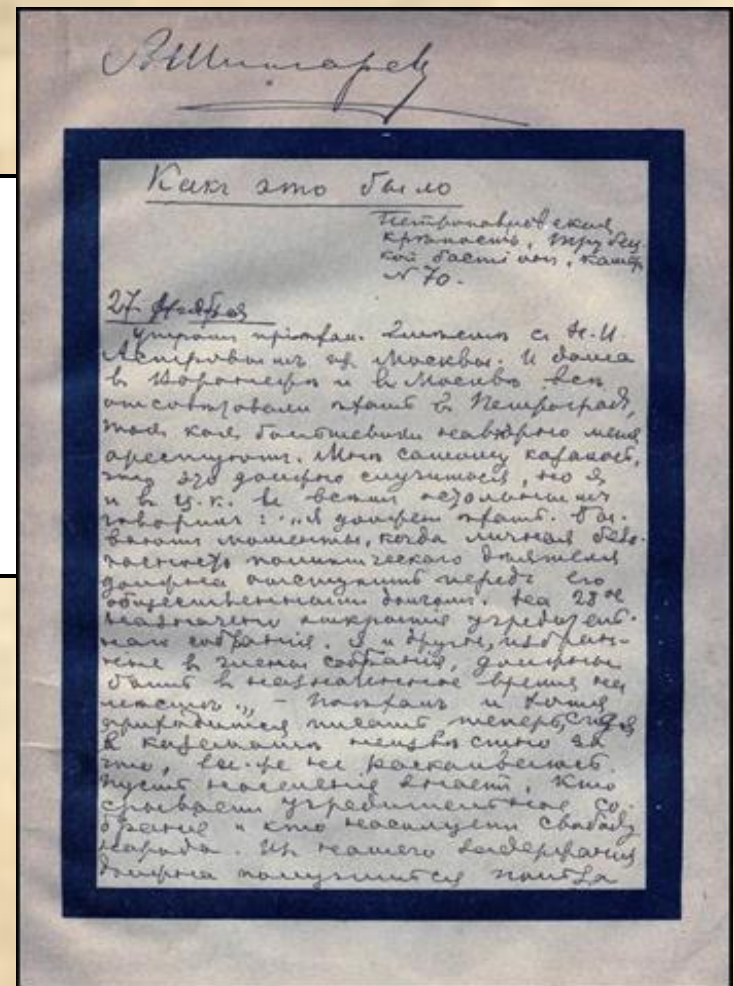 А Шингаревъ
Какъ это было
Петропавловская
крѣпость, Трубец-
кой бастіонъ, камера
№ 70.
27 Ноября
Утромъ пріѣхал. вмѣстѣ съ Н.И.
Астровымъ изъ Москвы. И дома
въ Воронежѣ и въ Москвѣ всѣ
отсовѣтовали ѣхать въ Петроградъ,
такъ какъ большевики навѣрно меня
арестуютъ. Мнѣ самому казалось,
что это должно случиться, но я
и въ Ц.К. и всѣмъ остальнымъ
говорилъ: „я долженъ ѣхать. Бы-
ваютъ моменты, когда личная безо-
пасность политическаго дѣятеля
должна отступить передъ его
общественнымъ долгомъ. На 28ое
назначено открытіе учредитель-
наго собранія. Я и другіе, избран-
ные въ члены собранія, должны
быть въ назначенное время на
мѣстѣ.„ – Поѣхалъ и хотя
приходится писать теперь, сидя
въ казематѣ неизвѣстно за
что, все-же не раскаиваюсь.
Пусть населеніе знаетъ, кто
срываетъ Учредительное Со-
браніе и кто насилуетъ свободу
народа. Изъ нашего задержанія
должна получиться польза